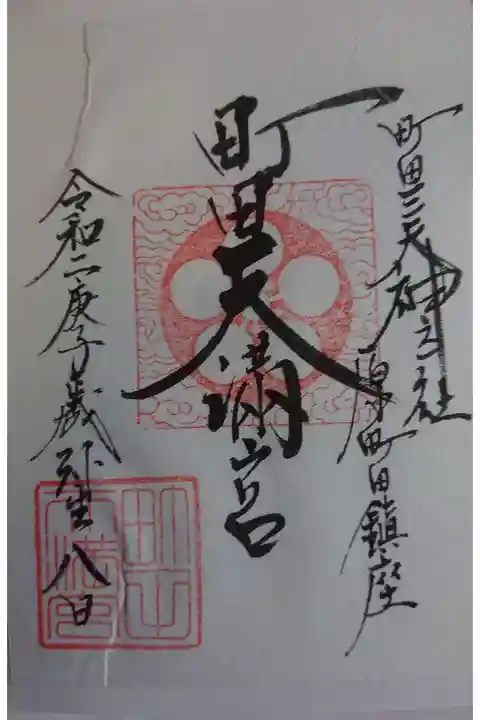 町田三天神々社
原町田鎮座
町田天満宮
令和二庚子歳弥生八日